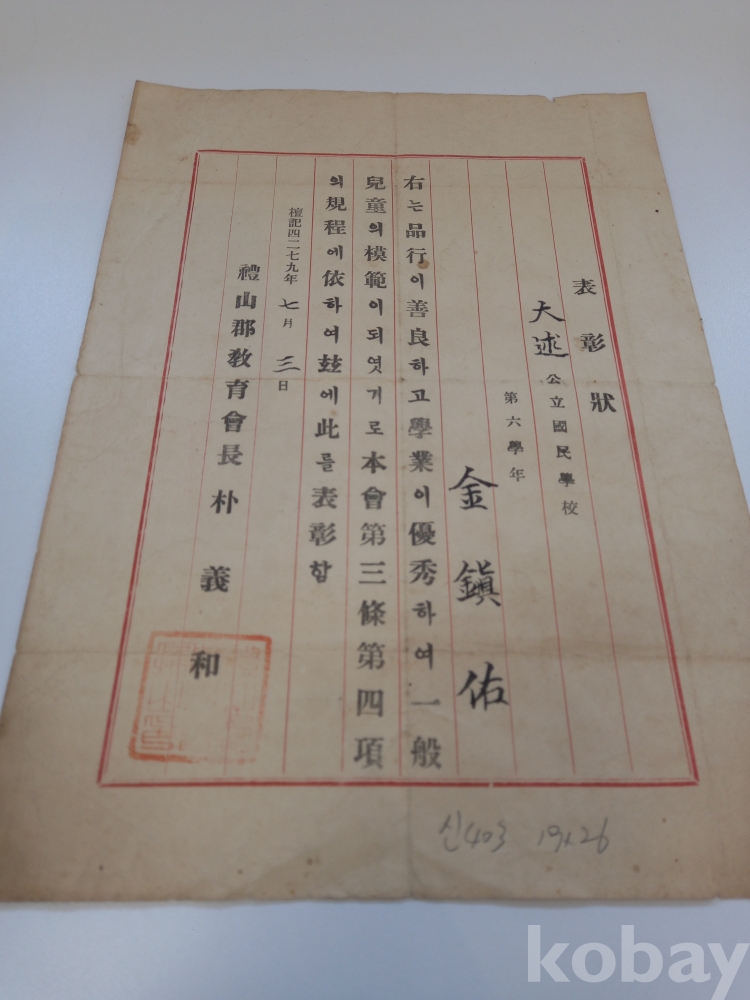 表彰狀
大述公立國民學校
第六學年
金鎭佑
右는品行이善良하고學業이優秀하여一般
兒童의模範이되엿기로本會第三條第四項
의規程에依하여玆에此를表彰함
檀記四二七九年七月三日
禮山郡敎育會長朴義和
신403 19x26
kobay